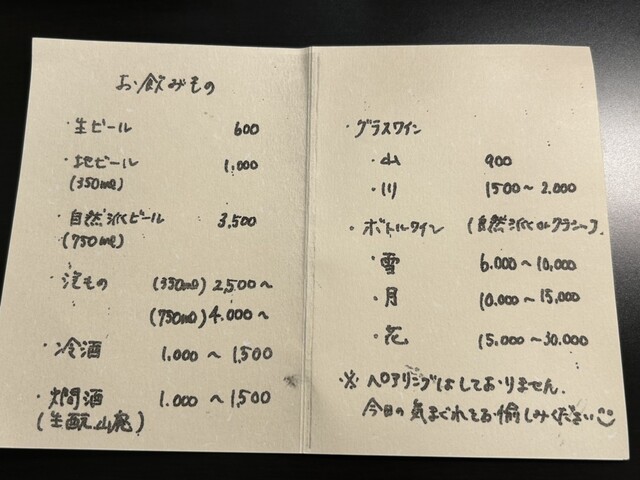 お飲みもの
・生ビール 600
・地ビール 1,000
(350ml)
・自然派ビール 3,500
(750ml)
・泡もの (350ml) 2,500〜
(750ml) 4,000〜
・冷酒 1,000〜1,500
・燗酒 1,000〜1,500
(生酛、山廃)
・グラスワイン
・山 900
・川 1500〜2,000
・ボトルワイン (自然派orクラシック)
・雪 6,000〜10,000
・月 10,000〜15,000
・花 15,000〜30,000
※ペアリングはしておりません。
今日の気まぐれをお愉しみください